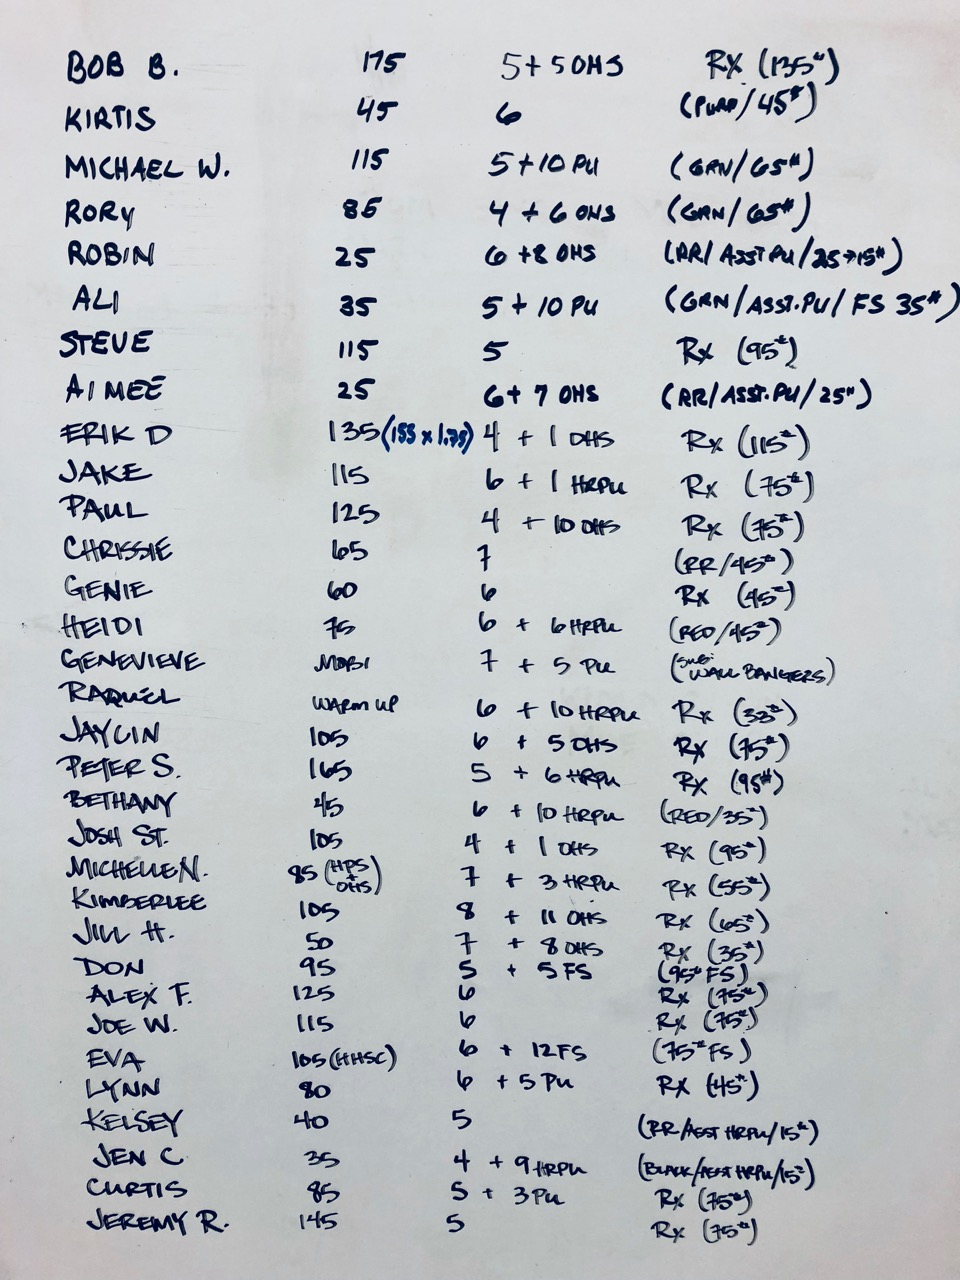 BOB B. 175 5 + 5 OHS RX (135#)
KIRTIS 45 6 (PURP/45#)
MICHAEL W. 115 5 + 10 PU (GRN/65#)
RORY 85 4 + 6 OHS (GRN/65#)
ROBIN 25 6 + 8 OHS (RR/ASST PU/25→15#)
ALI 35 5 + 10 PU (GRN/ASST.PU/FS 35#)
STEVE 115 5 Rx (95#)
AIMEE 25 6 + 7 OHS (RR/ASST.PU/25#)
ERIK D 135 (155 x 1.75) 4 + 1 OHS Rx (115#)
JAKE 115 6 + 1 HRPU Rx (75#)
PAUL 125 4 + 10 OHS Rx (75#)
CHRISSIE 65 7 (RR/45#)
GENIE 60 6 Rx (45#)
HEIDI 75 6 + 6 HRPU (RED/45#)
GENEVIEVE MOBI 7 + 5 PU (SUB: WALL BANGERS)
RAQUEL WARM UP 6 + 10 HRPU Rx (33#)
JAYLIN 105 6 + 5 OHS Rx (75#)
PETER S. 165 5 + 6 HRPU Rx (95#)
BETHANY 45 6 + 10 HRPU (RED/35#)
JOSH ST. 105 4 + 1 OHS Rx (95#)
MICHELLE N. 85 (HPS + OHS) 7 + 3 HRPU Rx (55#)
KIMBERLEE 105 8 + 11 OHS Rx (65#)
JILL H. 50 7 + 8 OHS Rx (35#)
DON 95 5 + 5 FS (95# FS)
ALEX F. 125 6 Rx (75#)
JOE W. 115 6 Rx (75#)
EVA 105 (HHSC) 6 + 12 FS (75# FS)
LYNN 80 6 + 5 PU Rx (45#)
KELSEY 40 5 (RR/ASST HRPU/15#)
JEN C 35 4 + 9 HRPU (BLACK/ASST HRPU/15#)
CURTIS 85 5 + 3 PU Rx (75#)
JEREMY R. 145 5 Rx (75#)